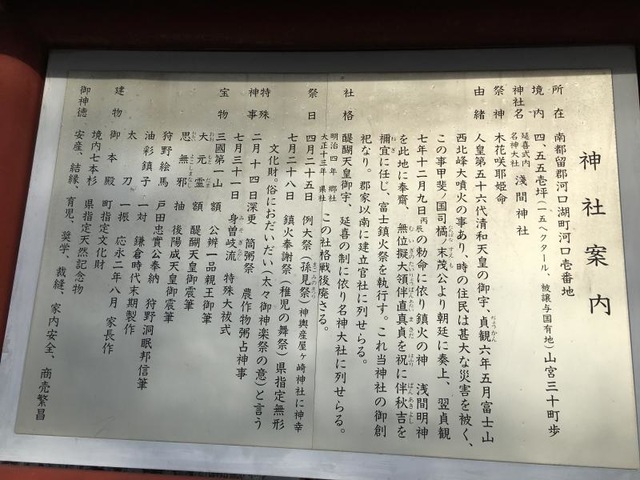 神社案内
所在 南都留郡河口湖町河口壱番地
境内 四、五五壱坪(一五ヘクタール、被譲与国有地)山宮三十町歩
神社名 延喜式内名神大社 浅間神社
祭神 木花咲耶姫命
由緒 人皇第五十六代清和天皇の御宇、貞観六年五月富士山
西北峰大噴火の事あり、時の住民は甚大な災害を被く、
この事甲斐ノ国司橘ノ末茂公より朝廷に奏上、翌貞観
七年十二月九日丙辰の勅命に依り鎮火の神 浅間明神
を此地に奉齋、無位擬大領伴直真貞を祝に伴秋吉を
禰宜に任し、富士鎮火祭を執行す。これ当神社の御創
祀なり。郡家以南に建立官社に列せらる。
醍醐天皇御宇、延喜の制に依り名神大社に列せらる。
社格 明治四年 郷社 大正十三年 県社 この社格戦後廃さる。
祭日 四月二十五日 例大祭(孫見祭)神輿産屋ヶ崎神社に神幸
七月二十八日 鎮火奉謝祭(稚児の舞祭)県指定無形
文化財。俗におだいだい(太々御神楽祭の意)と言う
特殊神事 二月十四日深更 筒粥祭 農作物粥占神事
七月三十一日 身曽岐流 特殊大祓式
宝物 三國第一山 額 公辨一品親王御筆
大元霊 額 醍醐天皇御宸筆
思無邪 抽 後陽成天皇御宸筆
狩野絵馬 戸田忠實公奉納 狩野洞眠邦信筆
油彩鎮子 一対 鎌倉時代末期製作
太刀 一振 応永二年八月 家長作
建物 御本殿 町指定文化財
境内七本杉 県指定天然記念物
御神徳 安産、結縁、育児、奨学、裁縫、家内安全、商売繁昌